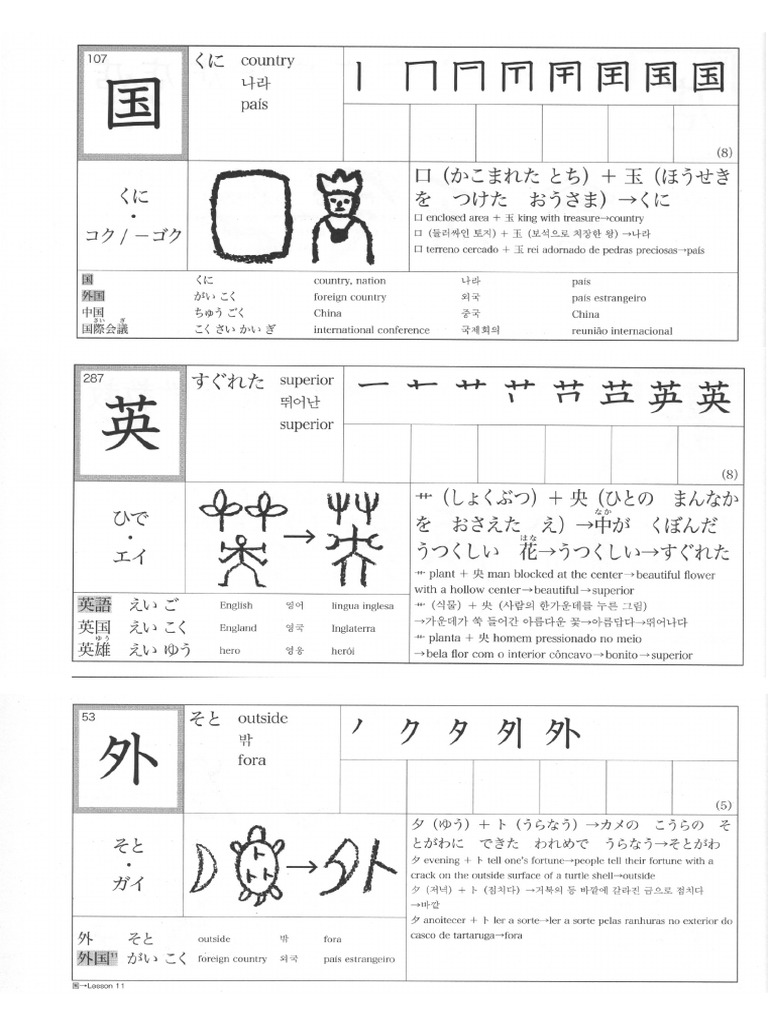 107
国
くに country
나라
país
丨 冂 国
(8)
くに
・
コク / −ゴク
口（かこまれた とち）＋ 玉（ほうせき
を つけた おうさま）→くに
口 enclosed area + 玉 king with treasure→country
口 (둘러싸인 토지) + 玉 (보석으로 치장한 왕) →나라
口 terreno cercado + 玉 rei adornado de pedras preciosas→país
国 くに country, nation 나라 país
外国 がい こく foreign country 외국 país estrangeiro
中国 ちゅう ごく China 중국 China
さい ぎ
国際会議 こく さい かい ぎ international conference 국제회의 reunião internacional
287
英
すぐれた superior
뛰어난
superior
一 艹 英
(8)
ひで
・
エイ
艹（しょくぶつ）＋ 央（ひとの まんなか
を おさえた え）→中が くぼんだ
なか
うつくしい 花→うつくしい→すぐれた
はな
艹 plant + 央 man blocked at the center→beautiful flower
with a hollow center→beautiful→superior
艹 (식물) + 央 (사람의 한가운데를 누른 그림)
→가운데가 쑥 들어간 아름다운 꽃→아름답다→뛰어나다
艹 planta + 央 homem pressionado no meio
→bela flor com o interior côncavo→bonito→superior
英語 えい ご English 영어 língua inglesa
英国 えい こく England 영국 Inglaterra
ゆう
英雄 えい ゆう hero 영웅 herói
53
外
そと outside
밖
fora
ノ ク タ 外
(5)
そと
・
ガイ
夕（ゆう）＋ ト（うらなう）→カメの こうらの そ
とがわに できた われめで うらなう→そとがわ
夕 evening + ト tell one's fortune→people tell their fortune with a
crack on the outside surface of a turtle shell→outside
夕 (저녁) + ト (점치다) →거북의 등 바깥에 갈라진 금으로 점치다
→바깥
夕 anoitecer + ト ler a sorte→ler a sorte pelas ranhuras no exterior do
casco de tartaruga→fora
外 そと outside 밖 fora
外国 11 がい こく foreign country 외국 país estrangeiro
国→Lesson 11